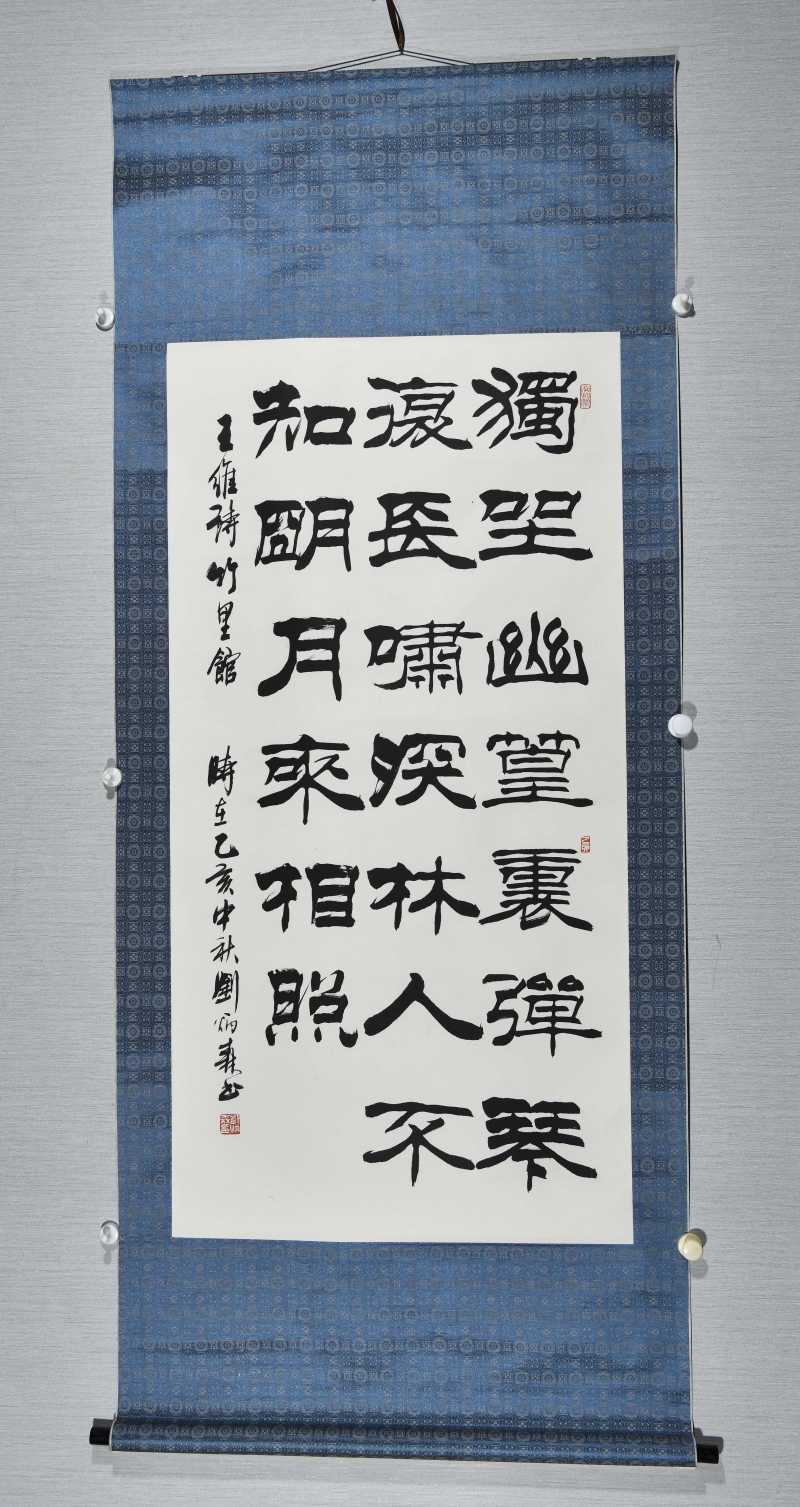 獨坐幽篁裏彈琴
復長嘯深林人不
知明月來相照
王維詩竹里館 時在乙亥中秋劉炳森書